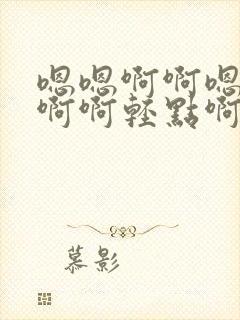 嗯嗯啊啊嗯
啊啊輕點啊
慕影